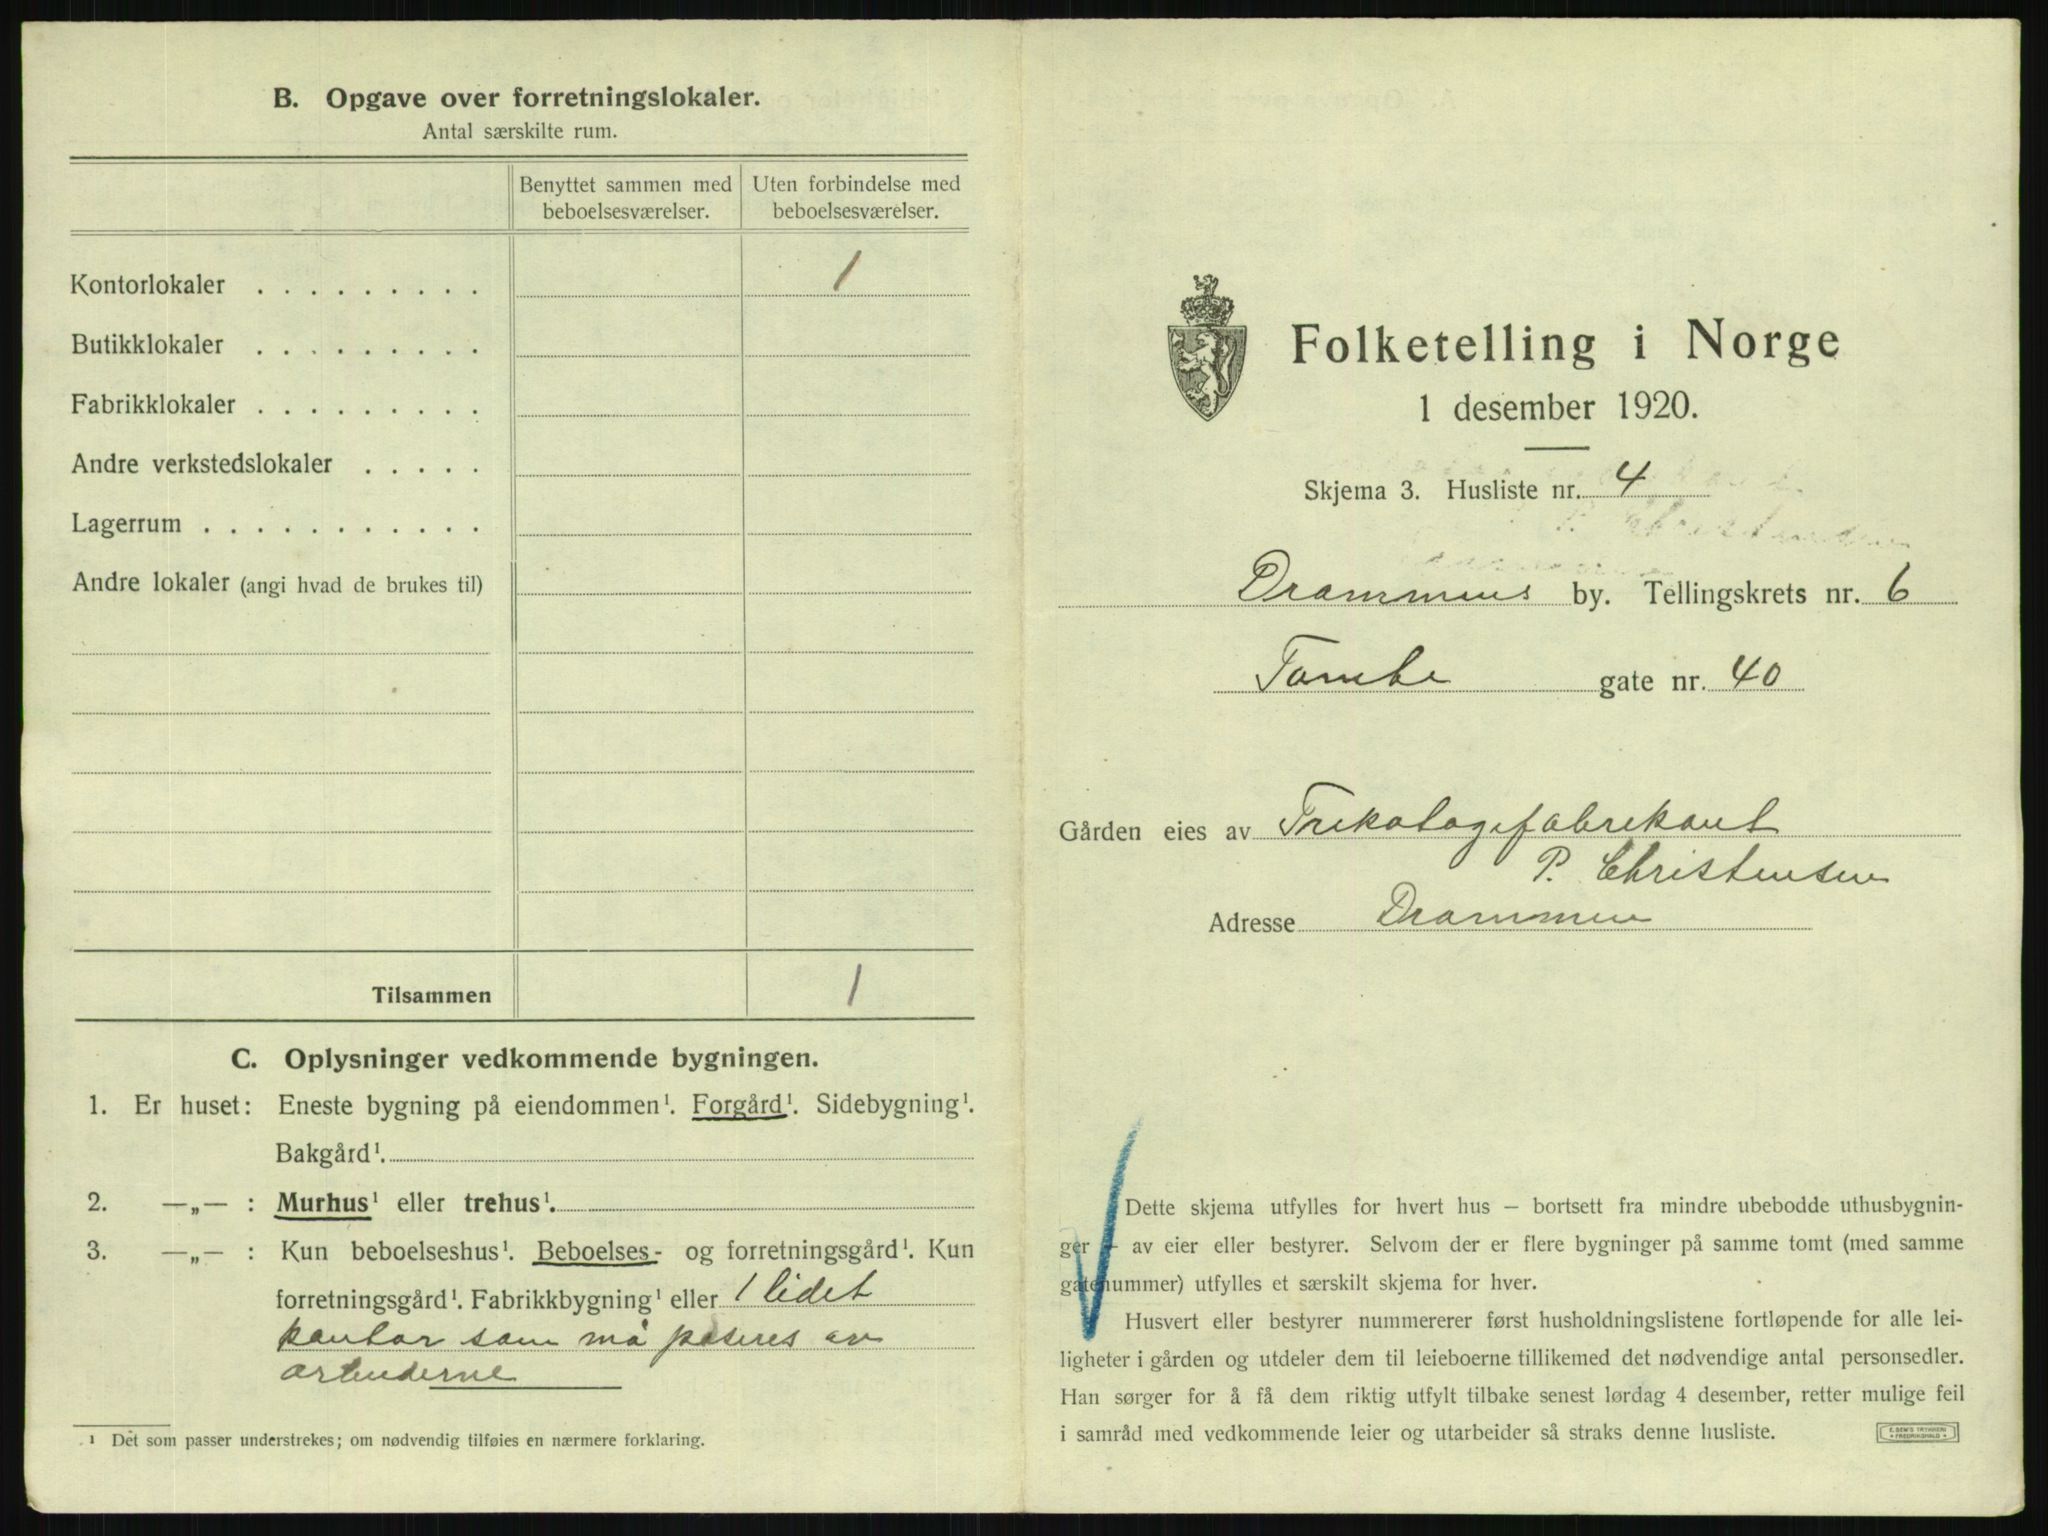 B. Opgave over forretningslokaler.
Antal særskilte rum.
Benyttet sammen med beboelsesværelser.
Uten forbindelse med beboelsesværelser.
Kontorlokaler . . . . . . . . . 1
Butikklokaler . . . . . . . . .
Fabrikklokaler . . . . . . . . .
Andre verkstedslokaler . . . . .
Lagerrum . . . . . . . . . . .
Andre lokaler (angi hvad de brukes til)
Tilsammen 1
C. Oplysninger vedkommende bygningen.
1. Er huset: Eneste bygning på eiendommen¹. Forgård¹. Sidebygning¹.
Bakgård¹.
2. —„— : Murhus¹ eller trehus¹.
3. —„— : Kun beboelseshus¹. Beboelses- og forretningsgård¹. Kun
forretningsgård¹. Fabrikkbygning¹ eller 1 lidet
kontor som må paseres av
¹ Det som passer understrekes; om nødvendig tilføies en nærmere forklaring.
Folketelling i Norge
1 desember 1920.
Skjema 3. Husliste nr. 4
P. Christensen
Drammens by. Tellingskrets nr. 6
Tomte gate nr. 40
Gården eies av Trikotagefabrikant
P. Christensen
Adresse Drammen
Dette skjema utfylles for hvert hus – bortsett fra mindre ubebodde uthusbygnin-
ger – av eier eller bestyrer. Selvom der er flere bygninger på samme tomt (med samme
gatenummer) utfylles et særskilt skjema for hver.
Husvert eller bestyrer nummererer først husholdningslistene fortløpende for alle lei-
ligheter i gården og utdeler dem til leieboerne tillikemed det nødvendige antal personsedler.
Han sørger for å få dem riktig utfylt tilbake senest lørdag 4 desember, retter mulige feil
i samråd med vedkommende leier og utarbeider så straks denne husliste.
E. SEM'S TRYKKERI
FREDRIKSHALD